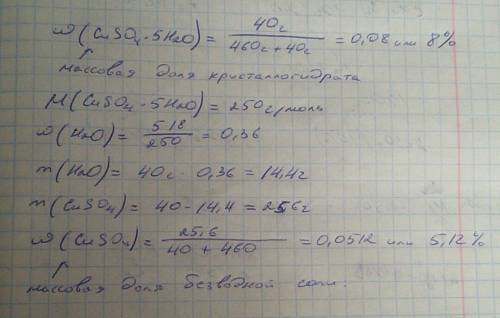 ω(CuSO₄·5H₂O) = 40г / 460г + 40г = 0,08 или 8%
массовая доля кристаллогидрата
M(CuSO₄·5H₂O) = 250г/моль
ω(H₂O) = 5·18 / 250 = 0,36
m(H₂O) = 40г · 0,36 = 14,4г
m(CuSO₄) = 40 - 14,4 = 25,6г
ω(CuSO₄) = 25,6 / 40 + 460 = 0,0512 или 5,12%
массовая доля безводной соли.